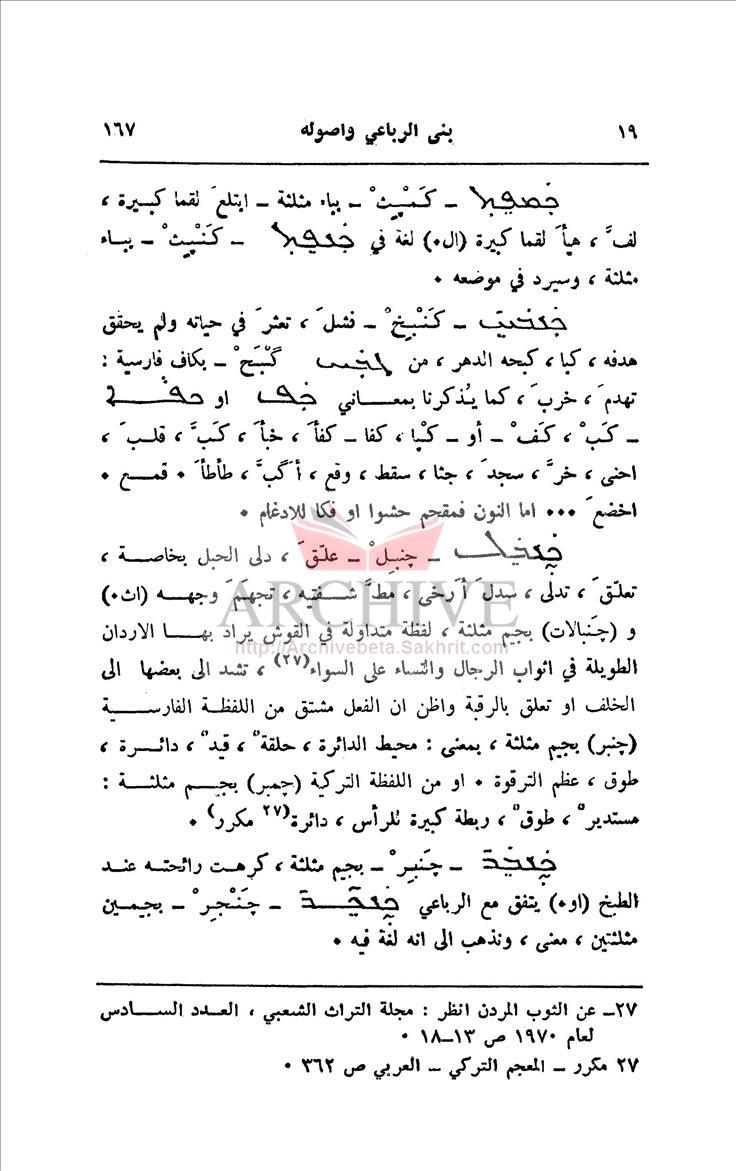 ١٩ بنى الرباعي واصوله ١٦٧
ـ كَمْبِثْ ـ بباء مثلثة ـ ابتلعَ لقما كبيرة ،
لفَّ ، هيأَ لقما كبيرة (ال٠) لغة في ـ كَنْبِثْ ـ ببـاء
مثلثة ، وسيرد في موضعه ٠
ـ كَنْبِخْ ـ فشلَ ، تعثرَ في حياته ولم يحقق
هدفه ، كبا ، كبحه الدهر ، من گَبَحْ ـ بكاف فارسية :
تهدمَ ، خربَ ، كما يُذكرنا بمعـــاني او
ـ كَبْ ، كَفْ ـ أو ـ كْبا ، كفا ـ كفأَ ، خبأَ ، كَبَّ ، قلبَ ،
احنى ، خرَّ ، سجدَ ، جثا ، سقط ، وقع ، أَكبَّ ، طأطأَ ٠ قمــع ٠
اخضعَ ٠٠٠ اما النون فمقحم حشوا او فكا للادغام ٠
ـ چنبِلْ ـ علّقَ ، دلى الحبل بخاصــة ،
تعلقَ ، تدلى ، سدلَ أَرخى ، مطَّ شــفته ، تجهمَ وجهــه (اث٠)
و (چنبالات) بجيم مثلثة ، لفظة متداولة في القوش يراد بهــا الاردان
الطويلة في اثواب الرجال والنساء على السواء(٢٧) ، تشد الى بعضها الى
الخلف او تعلق بالرقبة واظن ان الفعل مشتق من اللفظــة الفارســية
(چنبر) بجيم مثلثة ، بمعنى : محيط الدائرة ، حلقة ، قيد ، دائــرة ،
طوق ، عظم الترقوة ٠ او من اللفظة التركية (چمبر) بجيــم مثلثــة :
مستدير ، طوق ، ربطة كبيرة للرأس ، دائرة(٢٧ مكرر) ٠
ـ چَنبِرْ ـ بجيم مثلثة ، كرهت رائحتــه عنــد
الطبخ (او٠) يتفق مع الرباعي ـ چَنْچِرْ ـ بجيمــين
مثلثتين ، معنى ، ونذهب الى انه لغة فيه ٠
ARCHIVE
http://Archivebeta.Sakhrit.com
٢٧ـ عن الثوب المردن انظر : مجلة التراث الشعبي ، العــدد الســادس
لعام ١٩٧٠ ص ١٣ـ١٨ ٠
٢٧ مكرر ـ المعجم التركي ـ العربي ص ٣٦٢ ٠